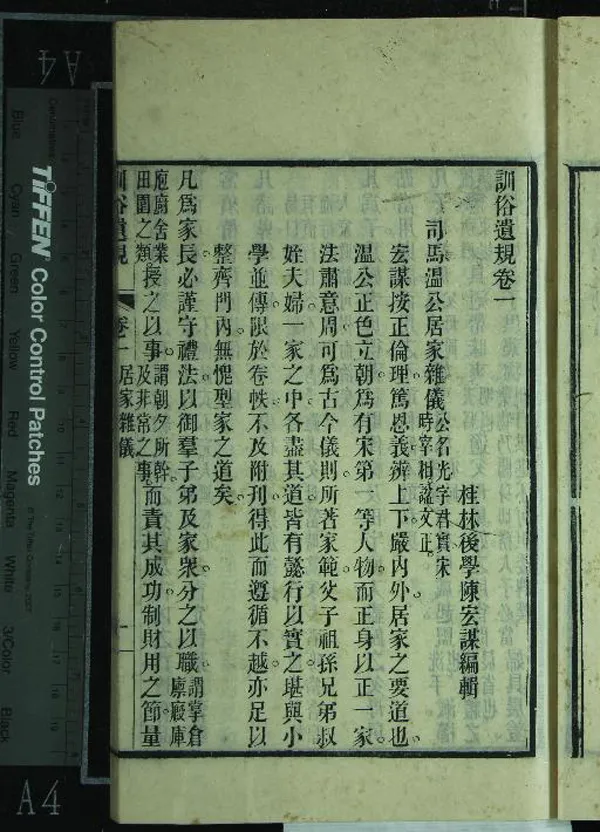 訓俗遺規卷一
桂林後學陳宏謀編輯
司馬溫公居家雜儀公名光字君實宋時宰相諡文正
宏謀按正倫理篤恩義辨上下嚴內外居家之要道也
溫公正色立朝為有宋第一等人物而正身以正一家
法肅意周可為古今儀則所著家範父子祖孫兄弟叔
姪夫婦一家之中各盡其道皆有懿行以實之堪與小
學並傳限於卷帙不及附刊得此而遵循不越亦足以
整齊門內無愧型家之道矣
凡為家長必謹守禮法以御羣子弟及家衆分之以職謂掌倉廩廄庫
庖廚舍業田園之類授之以事謂朝夕所幹及非常之事而責其成功制財用之節量
訓俗遺規 卷一 居家雜儀 一
A4
TIFFEN Color Control Patches
Centimetres
Blue
Cyan
Green
Yellow
Red
Magenta
White
3/Color
Black
A4